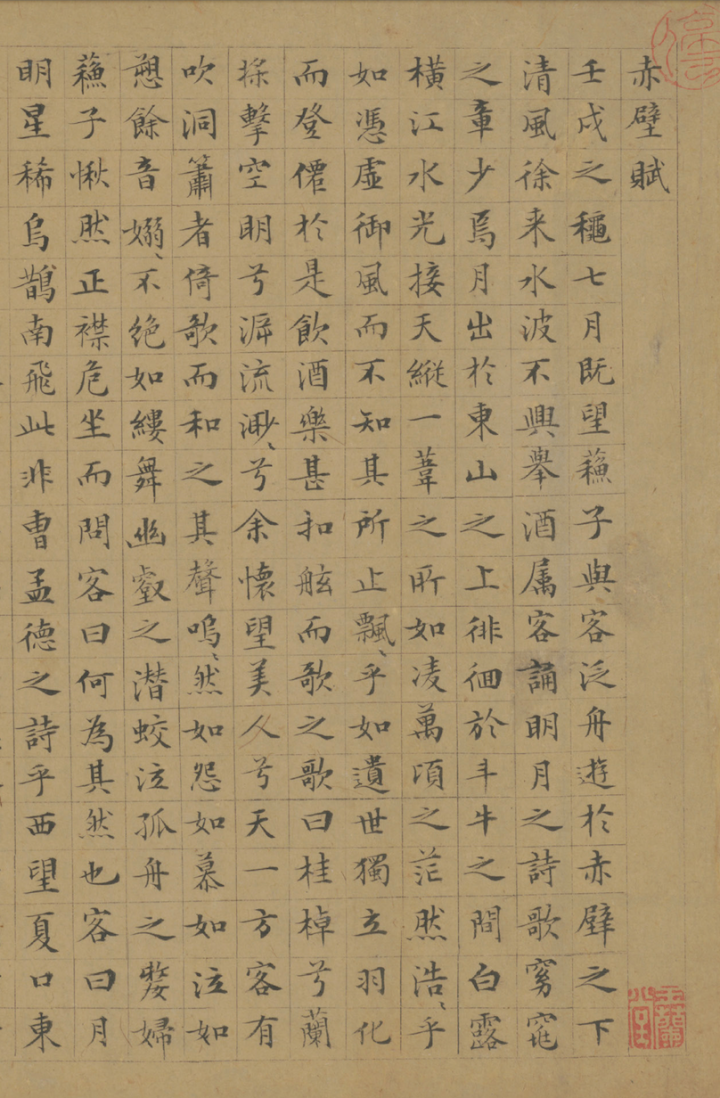 赤壁賦
壬戌之穐七月既望蘓子與客泛舟遊於赤壁之下
清風徐来水波不興舉酒属客誦明月之詩歌窈窕
之章少焉月出於東山之上徘徊於斗牛之間白露
橫江水光接天縱一葦之所如凌萬頃之茫然浩〻乎
如憑虛御風而不知其所止飄〻乎如遺世獨立羽化
而登僊於是飲酒樂甚扣舷而歌之歌曰桂棹兮蘭
槳擊空明兮泝流渺〻兮余懷望美人兮天一方客有
吹洞簫者倚歌而和之其聲嗚〻然如怨如慕如泣如
愬餘音嫋〻不絕如縷舞幽壑之潛蛟泣孤舟之嫠婦
蘓子愀然正襟危坐而問客曰何為其然也客曰月
明星稀烏鵲南飛此非曹孟德之詩乎西望夏口東